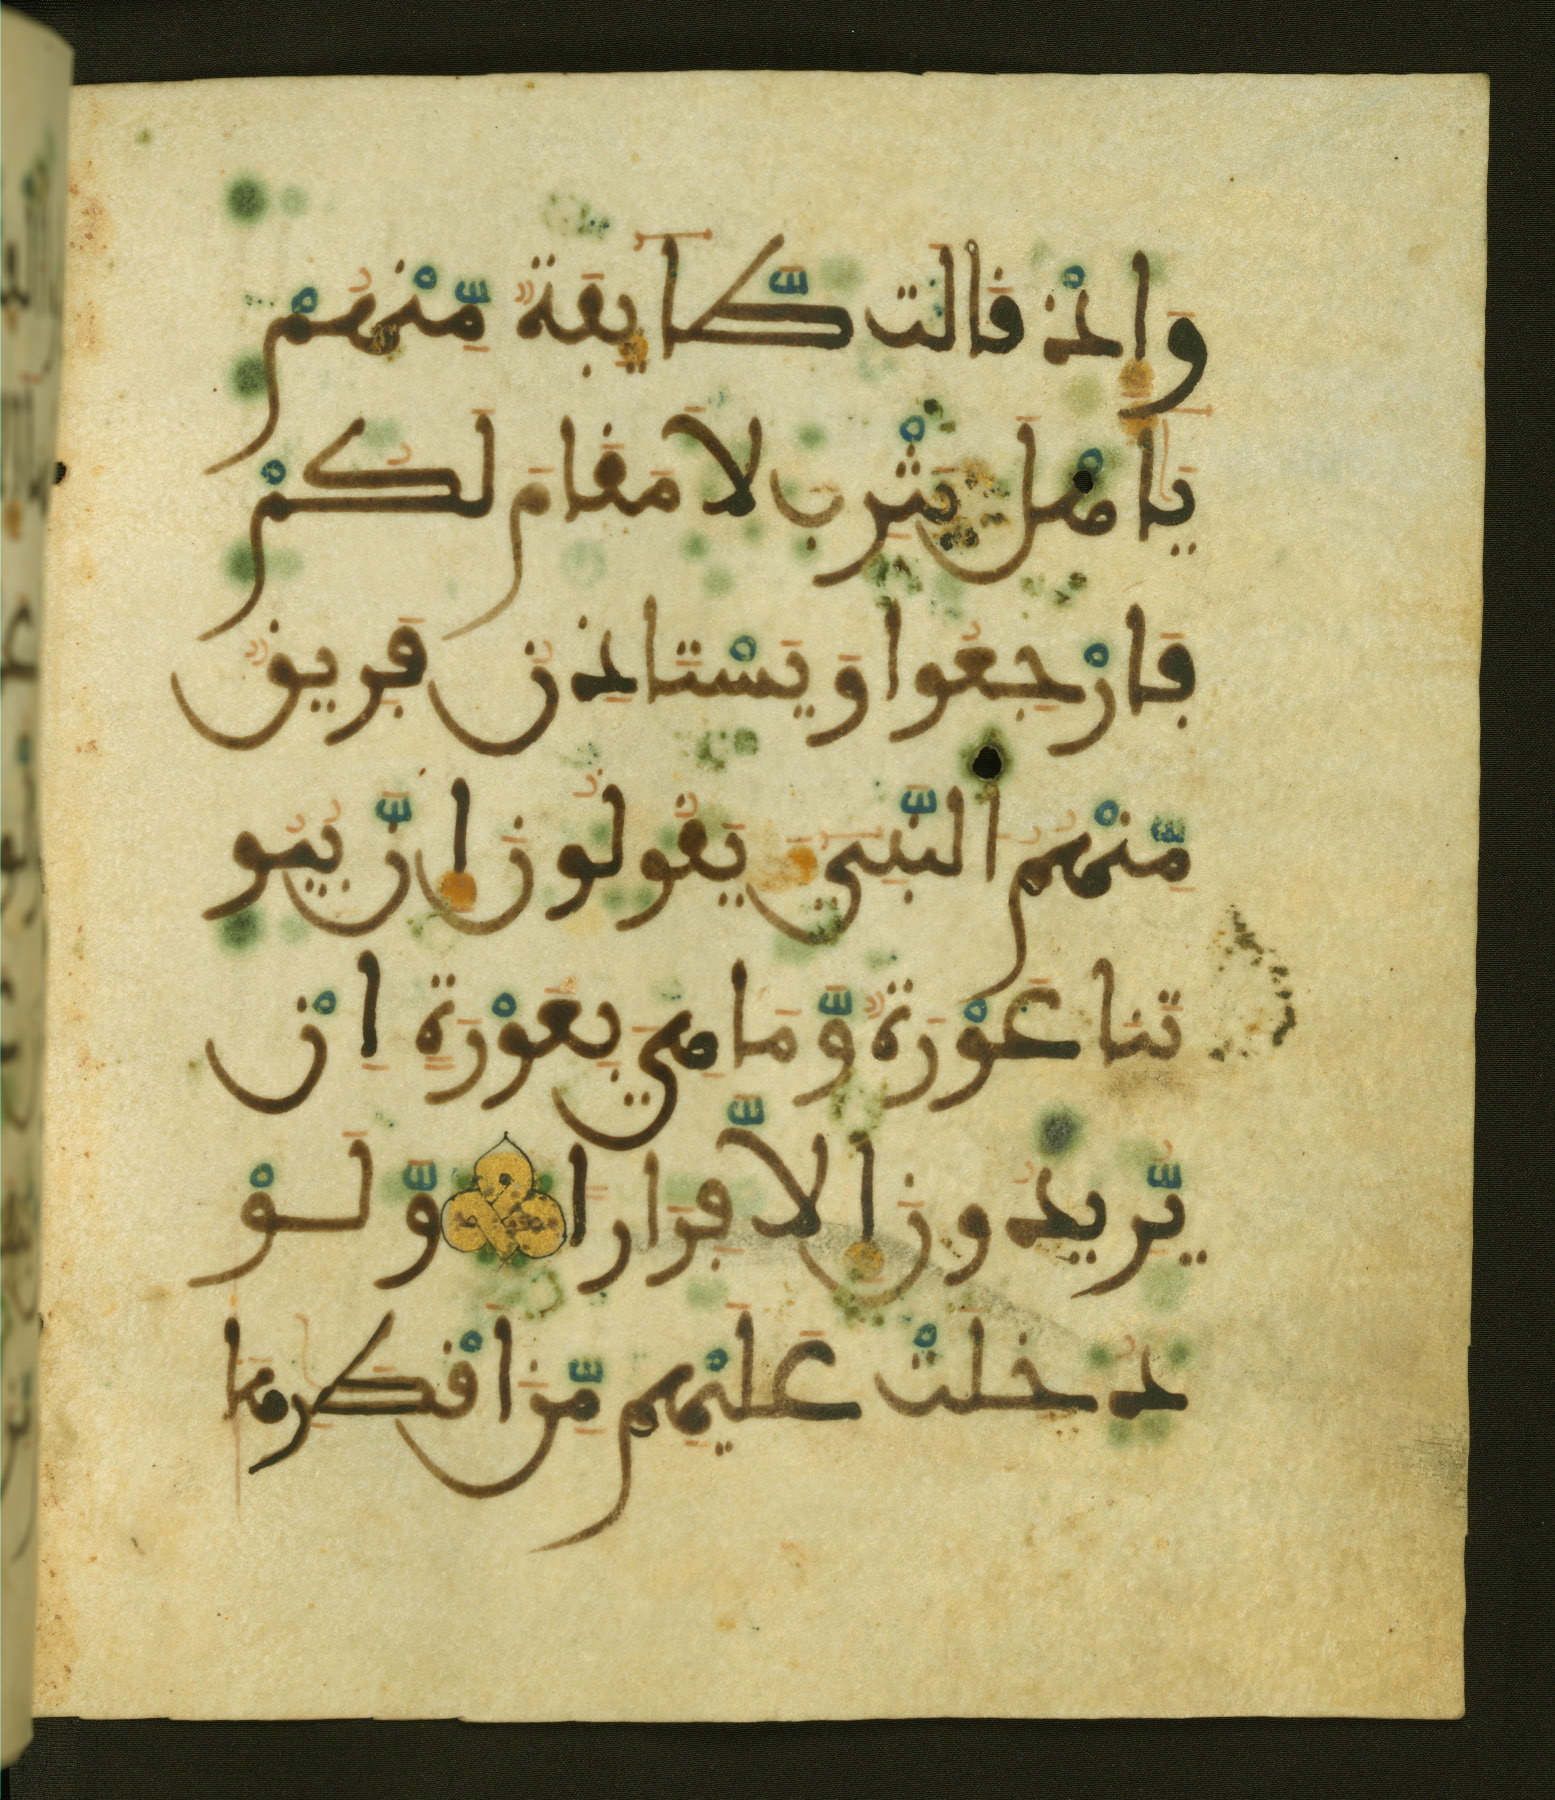 وَإِذْ قَالَت طَّآيِفَةٌ مِّنْهُمْ
يَٰٓأَهْلَ يَثْرِبَ لَا مَقَامَ لَكُمْ
فَارْجِعُوا وَيَسْتَاذِنُ فَرِيقٌ
مِّنْهُمُ النَّبِيٓءَ يَقُولُونَ إِنَّ بُيُو
تَنَا عَوْرَةٌ وَّمَا هِيَ بِعَوْرَةٍ اِنْ
يُّرِيدُونَ إِلَّا فِرَارًا وَّلَوْ
دُخِلَتْ عَلَيْهِم مِّنَ اقْطَٰرِهَا